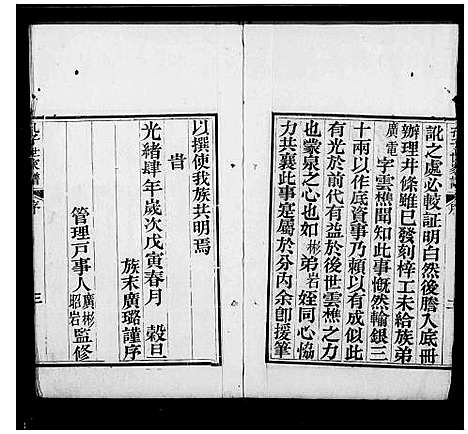 訛之處必較証明白然後謄入底冊
辦理井條雖已發刻梓工未給族弟
廣電字雲樵聞知此事慨然輸銀三
十兩以作底資事乃賴以有成似此
有光於前代有益於後世雲樵之力
也蒙泉之心也如彬弟岩姪同心協
力共襄此事是屬於分內余即援筆
以撰使我族共明焉
旹
光緒肆年歲次戊寅春月 穀旦
族末廣璐謹序
管理戸事人廣彬昭岩監修
世家譜 序 三